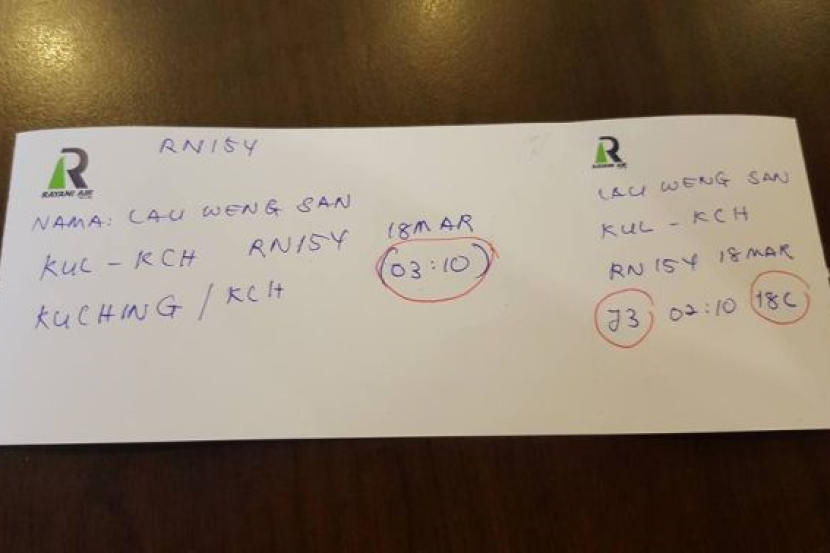 RN154
RAYANI AIR
NAMA: LAU WENG SAN
KUL - KCH RN154
18 MAR
(03:10)
KUCHING / KCH
RAYANI AIR
LAU WENG SAN
KUL - KCH
RN 154 18 MAR
J3 02:10 18C